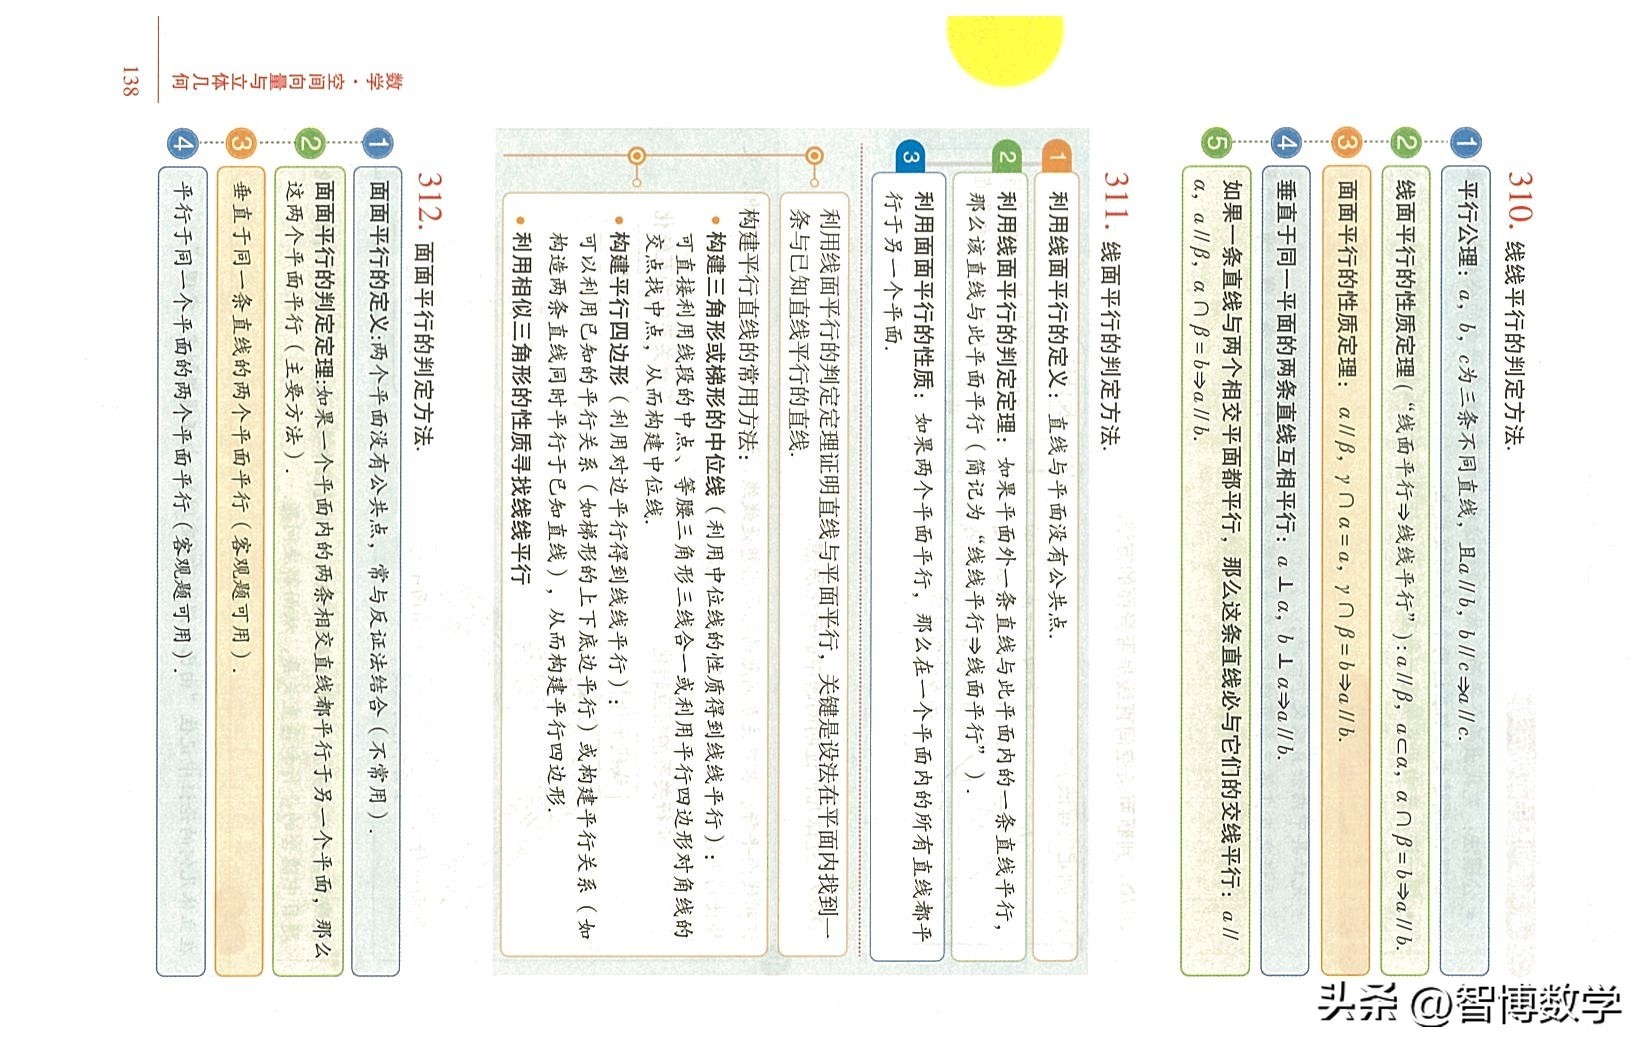 310. 线线平行的判定方法.
1 平行公理：a，b，c为三条不同直线，且a∥b，b∥c⇒a∥c.
2 线面平行的性质定理（“线面平行⇒线线平行”）：a∥β，a⊂α，α∩β=b⇒a∥b.
3 面面平行的性质定理：α∥β，γ∩α=a，γ∩β=b⇒a∥b.
4 垂直于同一平面的两条直线互相平行：a⊥α，b⊥α⇒a∥b.
5 如果一条直线与两个相交平面都平行，那么这条直线必与它们的交线平行：a∥
α，a∥β，α∩β=b⇒a∥b.
311. 线面平行的判定方法.
1 利用线面平行的定义：直线与平面没有公共点.
2 利用线面平行的判定定理：如果平面外一条直线与此平面内的一条直线平行，
那么该直线与此平面平行（简记为“线线平行⇒线面平行”）.
3 利用面面平行的性质：如果两个平面平行，那么在一个平面内的所有直线都平
行于另一个平面.
利用线面平行的判定定理证明直线与平面平行，关键是设法在平面内找到一
条与已知直线平行的直线.
构建平行直线的常用方法：
• 构建三角形或梯形的中位线（利用中位线的性质得到线线平行）：
可直接利用线段的中点、等腰三角形三线合一或利用平行四边形对角线的
交点找中点，从而构建中位线.
• 构建平行四边形（利用对边平行得到线线平行）：
可以利用已知的平行关系（如梯形的上下底边平行）或构建平行关系（如
构造两条直线同时平行于已知直线），从而构建平行四边形.
• 利用相似三角形的性质寻找线线平行
312. 面面平行的判定方法.
1 面面平行的定义:两个平面没有公共点，常与反证法结合（不常用）.
2 面面平行的判定定理:如果一个平面内的两条相交直线都平行于另一个平面，那么
这两个平面平行（主要方法）.
3 垂直于同一条直线的两个平面平行（客观题可用）.
4 平行于同一个平面的两个平面平行（客观题可用）.
数学·空间向量与立体几何
138
头条 @智博数学